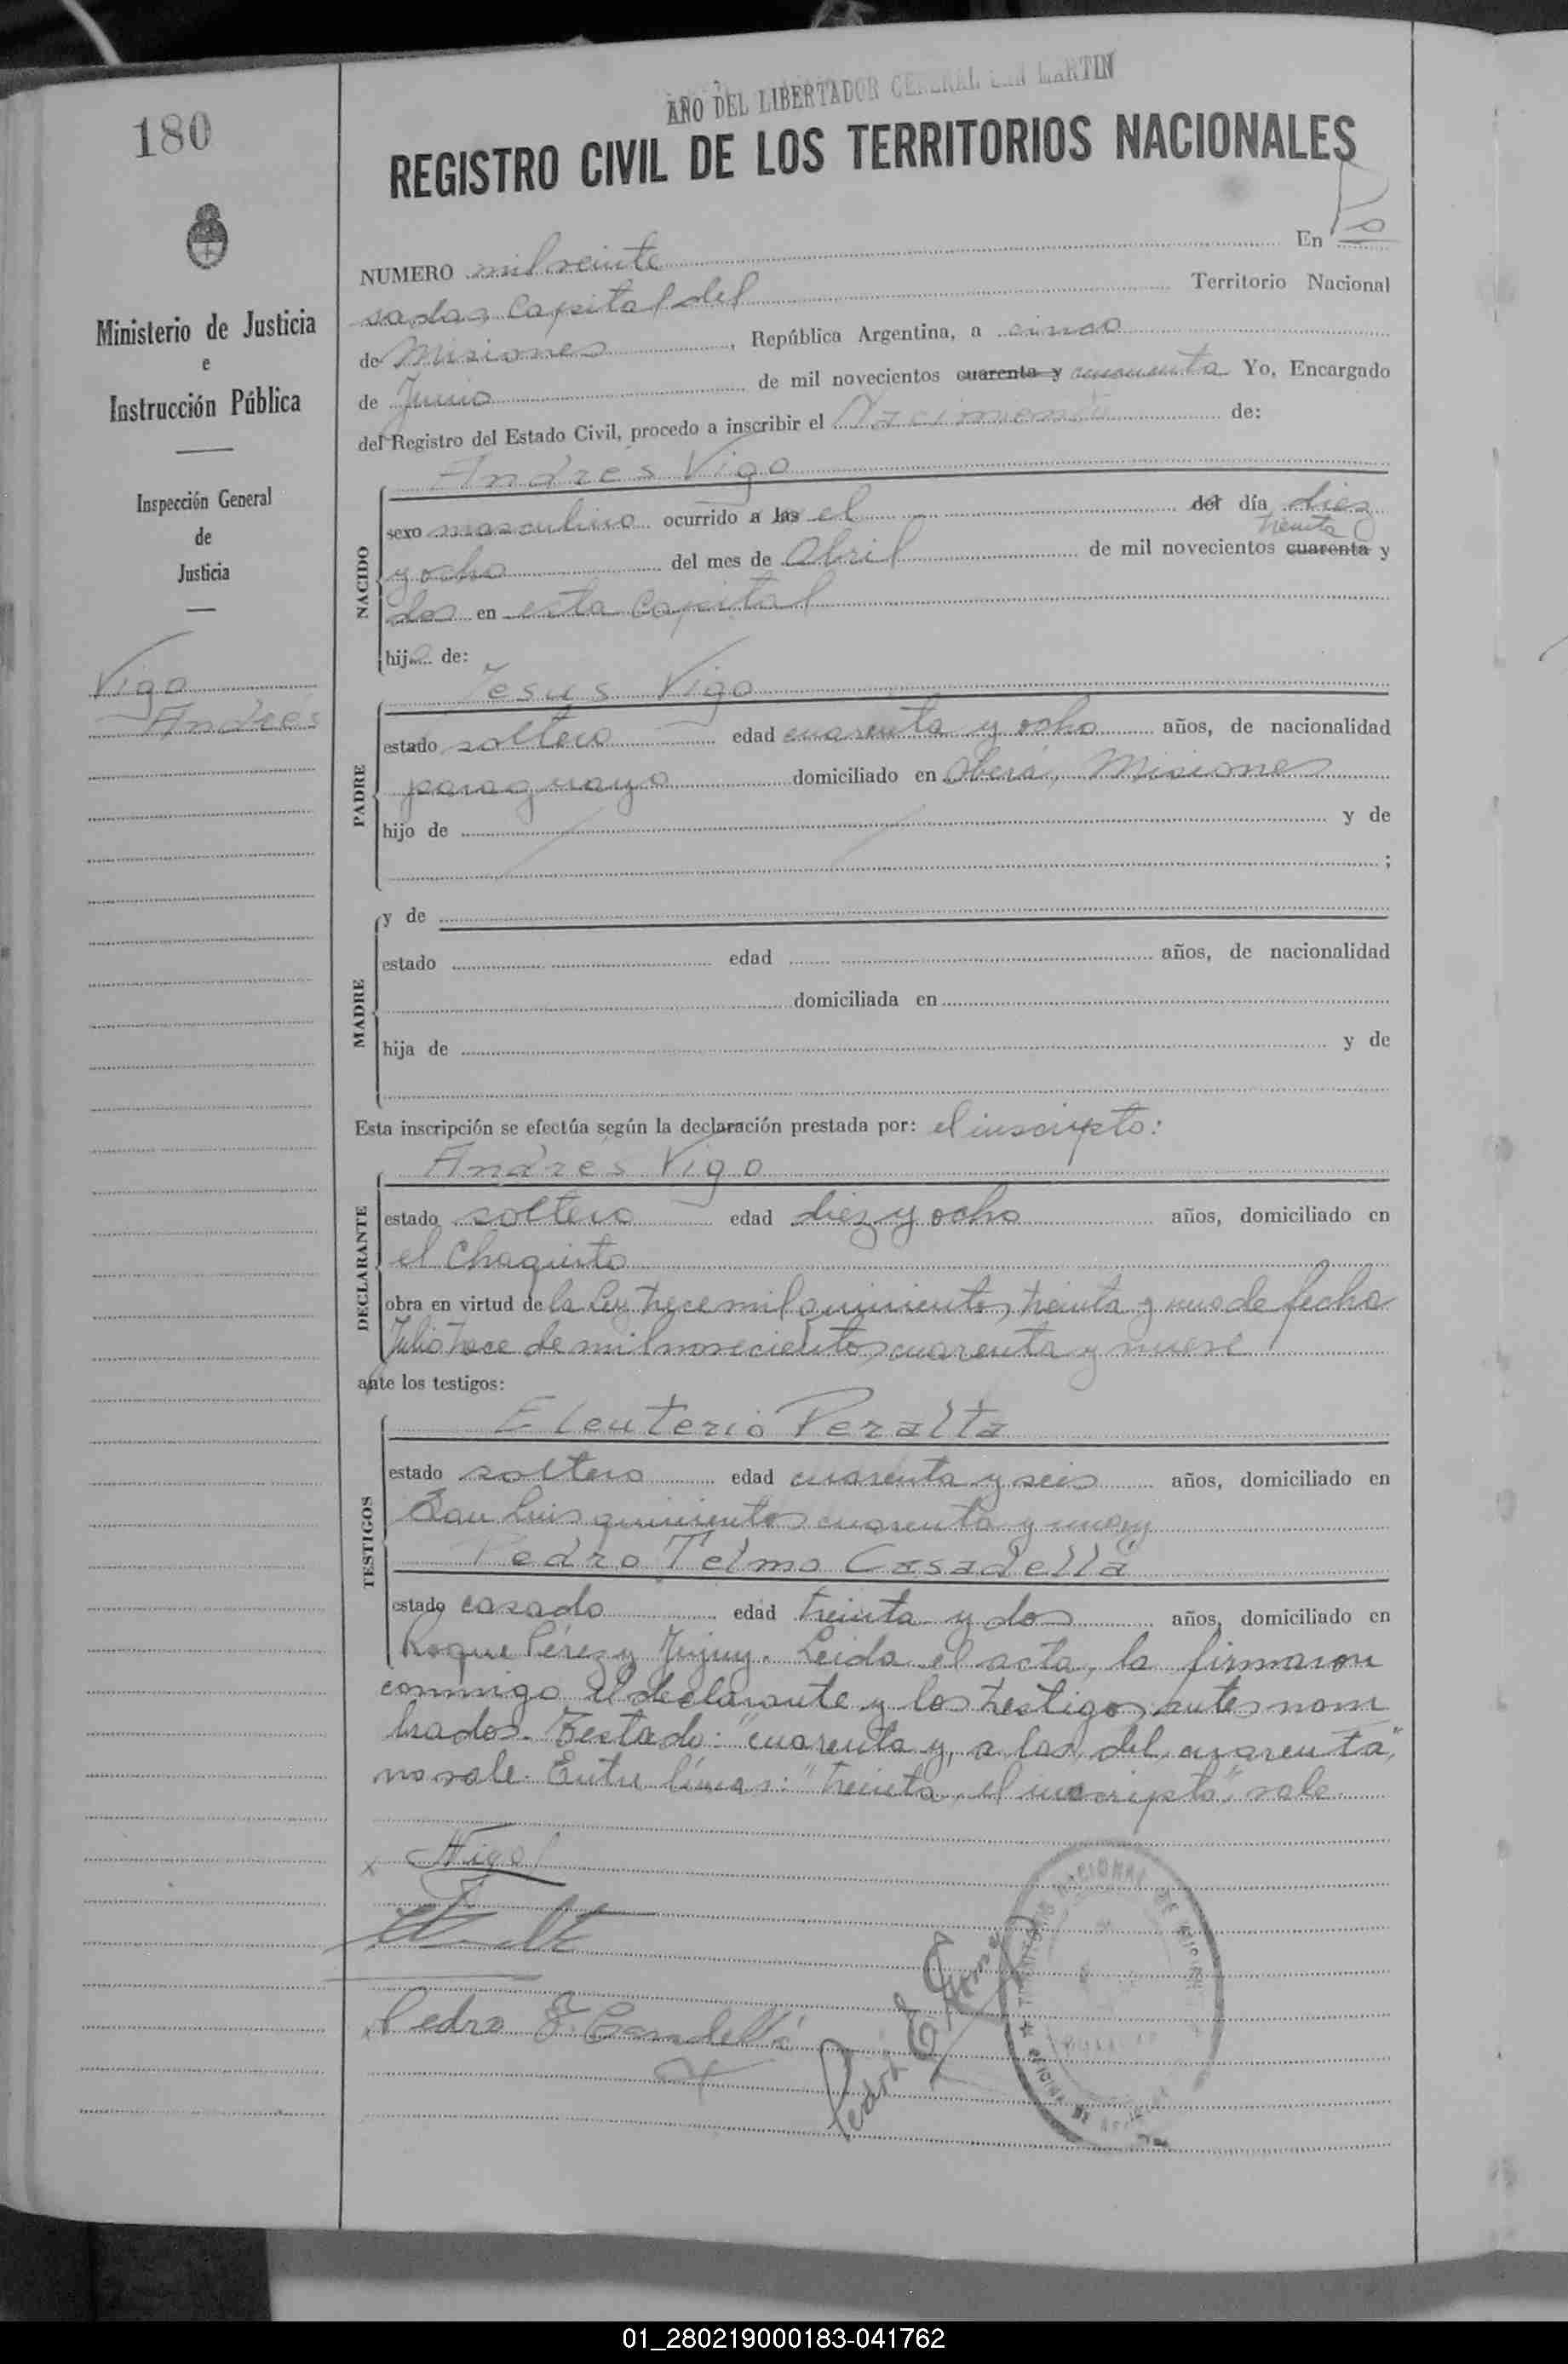 180
AÑO DEL LIBERTADOR GENERAL SAN MARTIN
REGISTRO CIVIL DE LOS TERRITORIOS NACIONALES
Ministerio de Justicia
e
Instrucción Pública
Inspección General
de
Justicia
Vigo
Andres
NUMERO mil veinte En Po
sadas Capital del Territorio Nacional
de Misiones, República Argentina, a cinco
de Junio de mil novecientos cuarenta y cincuenta Yo, Encargado
del Registro del Estado Civil, procedo a inscribir el Nacimiento de:
Andrés Vigo
NACIDO
sexo masculino ocurrido a las el del día diez
treinta
y ocho del mes de Abril de mil novecientos cuarenta y
dos en esta Capital
hijo de:
Jesus Vigo
PADRE
estado soltero edad cuarenta y ocho años, de nacionalidad
paraguaya domiciliado en Oberá, Misiones
hijo de y de
;
MADRE
y de
estado edad años, de nacionalidad
domiciliada en
hija de y de
Esta inscripción se efectúa según la declaración prestada por: el inscripto:
Andrés Vigo
DECLARANTE
estado soltero edad diez y ocho años, domiciliado en
el Chaquito
obra en virtud de la ley trece mil quinientos treinta y uno de fecha
Julio trece de mil novecientos cuarenta y nueve
ante los testigos:
TESTIGOS
Eleuterio Peralta
estado soltero edad cuarenta y seis años, domiciliado en
San Luis quinientos cuarenta y uno y
Pedro Telmo Casadellá
estado casado edad treinta y dos años, domiciliado en
Roque Pérez y Jujuy. Leida el acta, la firmaron
conmigo el declarante y los testigos antes nom
brados. Testado: "cuarenta y, a las, del, cuarenta",
no vale. Entre líneas: "treinta, el inscripto", vale
x AVigo
Pedro T. Casadellá
Pedro E.
TERRITORIO NACIONAL DE MISIONES
01_280219000183-041762